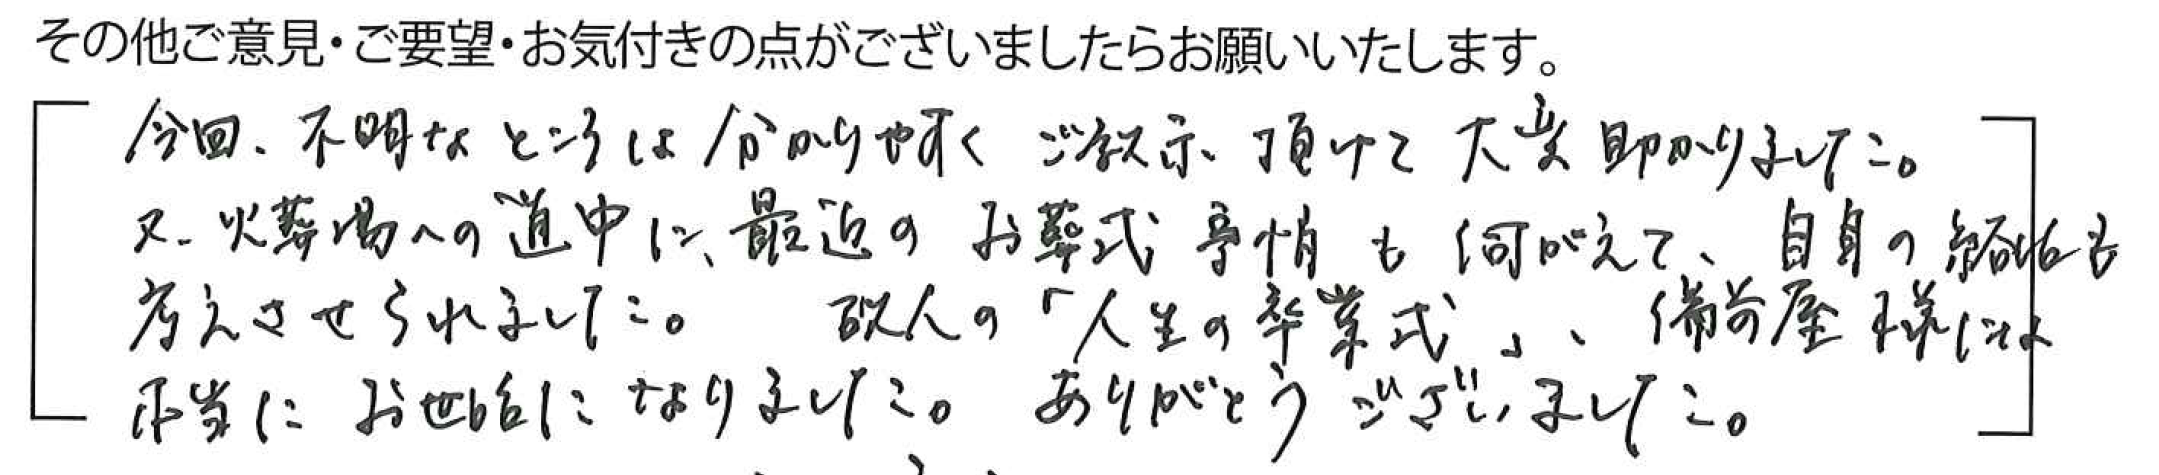 その他ご意見・ご要望・お気付きの点がございましたらお願いいたします。
今回、不明なところは分かりやすく ご教示 頂けて 大変 助かりました。
又、火葬場への道中に、最近の お葬式 事情 も 伺がえて、自身の 終活も
考えさせられました。 故人の「人生の卒業式」、備前屋 様には
本当に お世話に なりました。 ありがとう ございました。